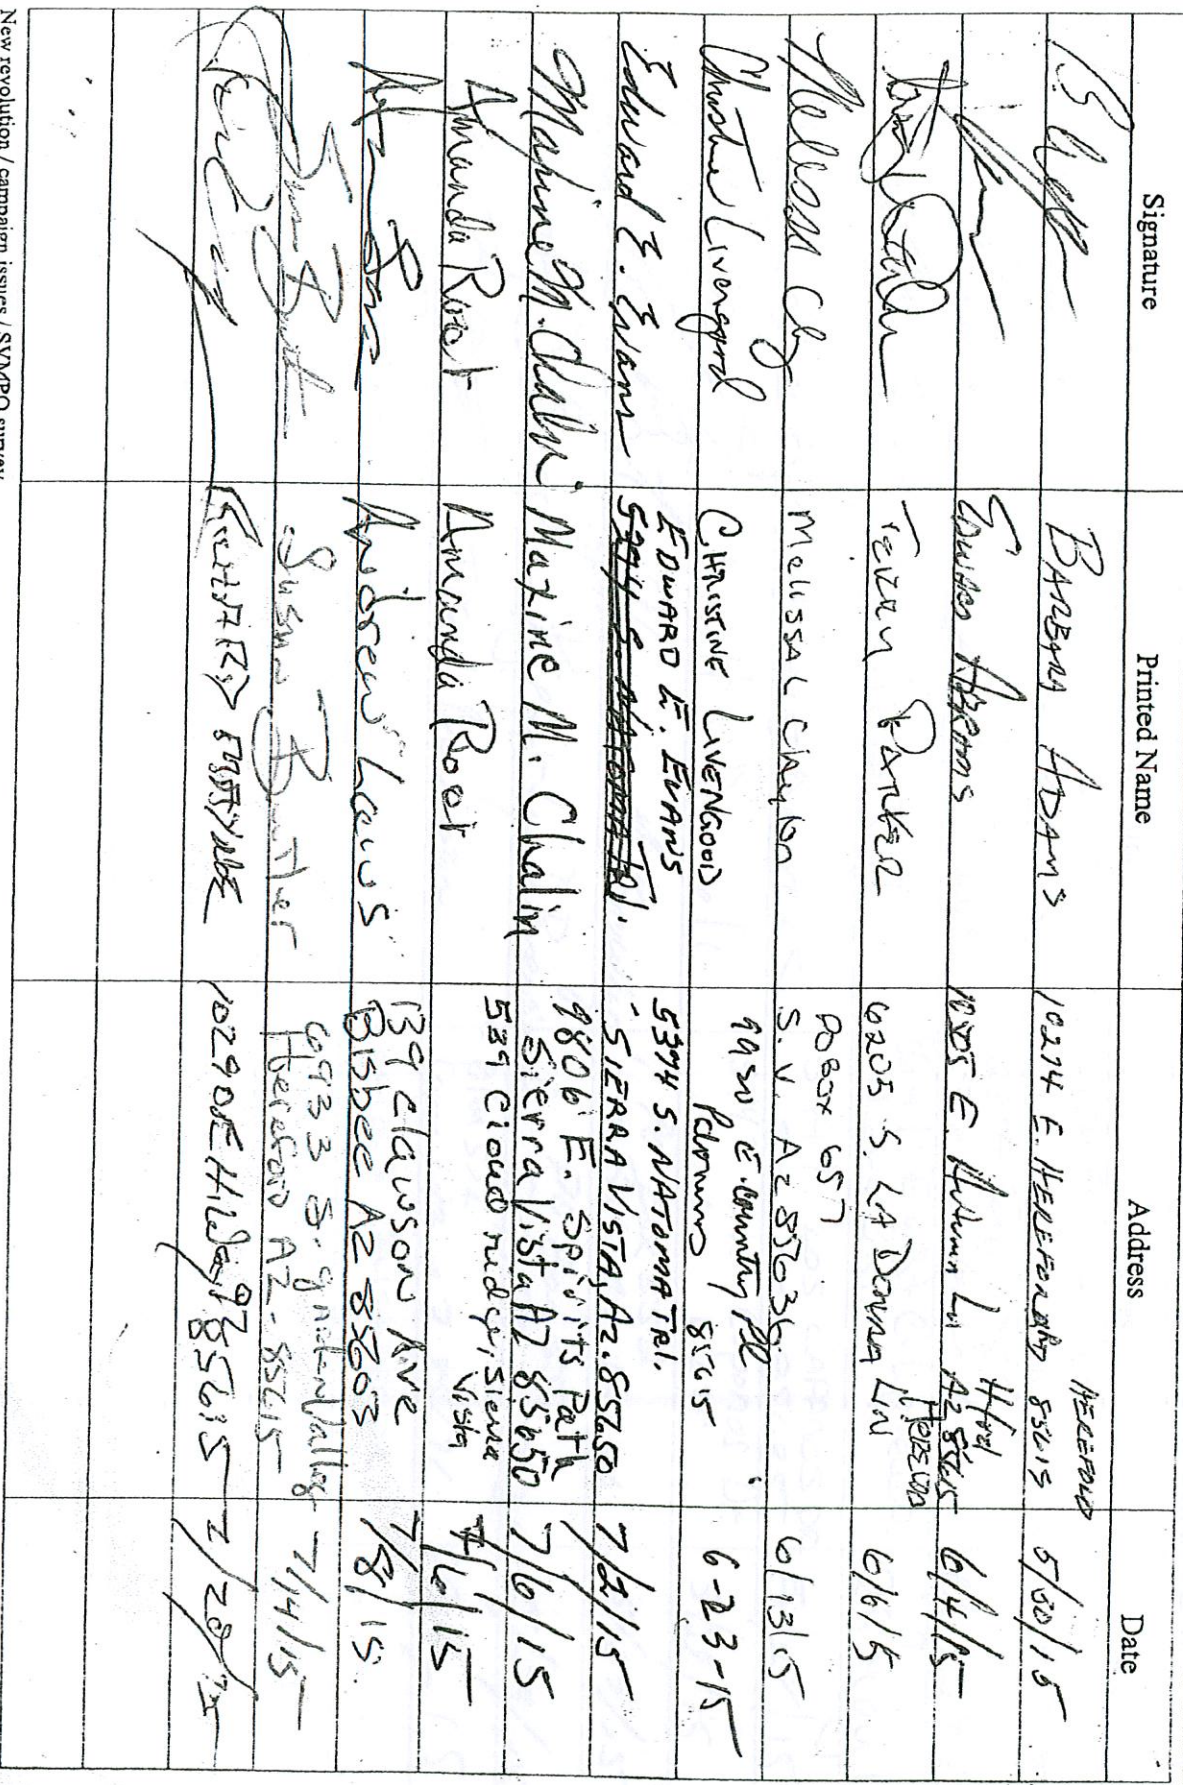 Signature Printed Name Address Date
BARBARA ADAMS 10274 E. HEREFORD RD 85615 HEREFORD 5/30/15
EDWARD ABRAMS E. Autumn Ln Hfd AZ 85615 6/4/15
TERRY PARKER 6205 S. LA DONNA LN HEREFORD 6/6/15
Melissa L Clayton PO Box 657
S.V. AZ 85636 6/13/15
Christine Livengood CHRISTINE LIVENGOOD E. Country Rd
Palominas 85615 6-23-15
Edward E. Evans EDWARD E. EVANS 5374 S. NATOMA TRL.
SIERRA VISTA, AZ. 85650 7/2/15
Maxine M. Chalin Maxine M. Chalin 9806 E. Spirits Path
Sierra Vista AZ 85650 7/6/15
Amanda Root Amanda Root 539 Cloud ridge, Sierra
Vista 7/6/15
Andrew Laws 139 Clawson Ave
Bisbee AZ 85603 7/8/15
Susan Butler 6933 S. Valley
Hereford AZ - 85615 7/14/15
85615
New revolution / campaign issues / SVMPO survey